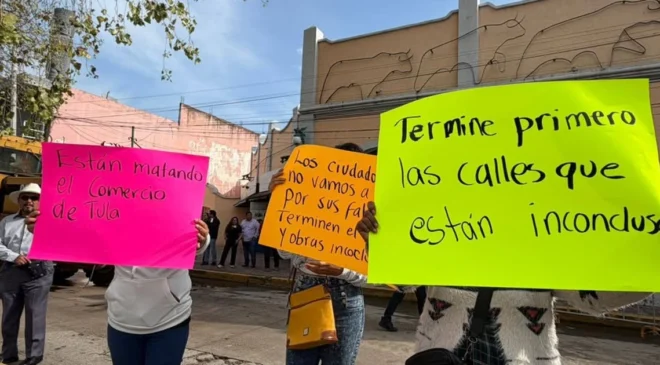 Están matando
el Comercio
de Tula
Los ciudad
no vamos a
por sus fa
Terminen el
y obras incocl
Termine primero
las calles que
están inconclus